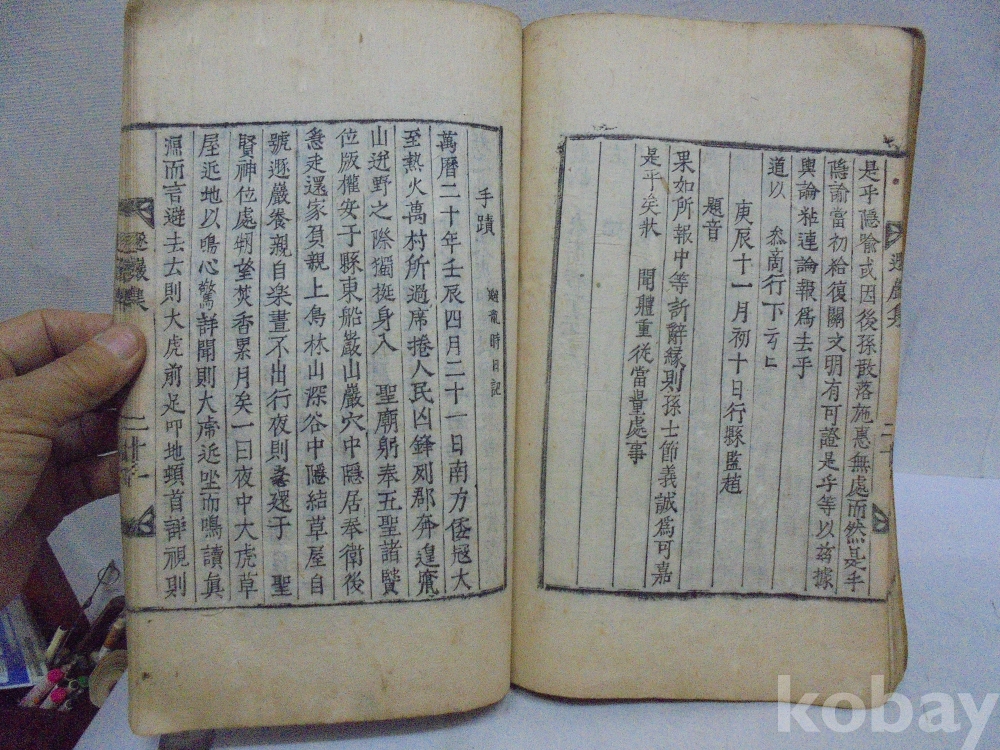 是乎隱喩或因後孫散落施惠無處而然是乎
隱諭當初給復關文明有可證是乎等以玆據
輿論粘連論報爲去乎
叅商行下云亡
道以
庚辰十一月初十日行縣監趙
題音
果如所報中等訴辭緣則孫士節義誠爲可嘉
是乎矣狀 聞軆重從當量處事
手蹟 龍時日記
萬曆二十年壬辰四月二十一日南方倭冦大
至熱火萬村所過席捲人民凶鋒列郡奔遑竄
山迯野之際獨挺身入 聖廟躬奉五聖諸賢
位版權安于縣東船巖山巖穴中隱居奉衛後
急走還家負親上鳥林山深谷中隱結草屋自
號遯巖養親自樂晝不出行夜則還于 聖
賢神位處物望焚香累月矣一日夜中大虎草
屋近地以鳴心驚詳聞則大虎近坐而鳴讀眞
濂而言避去去則大虎前足叩地頓首辞視則
遯巖集
二十
遯巖集
二十一
kobay